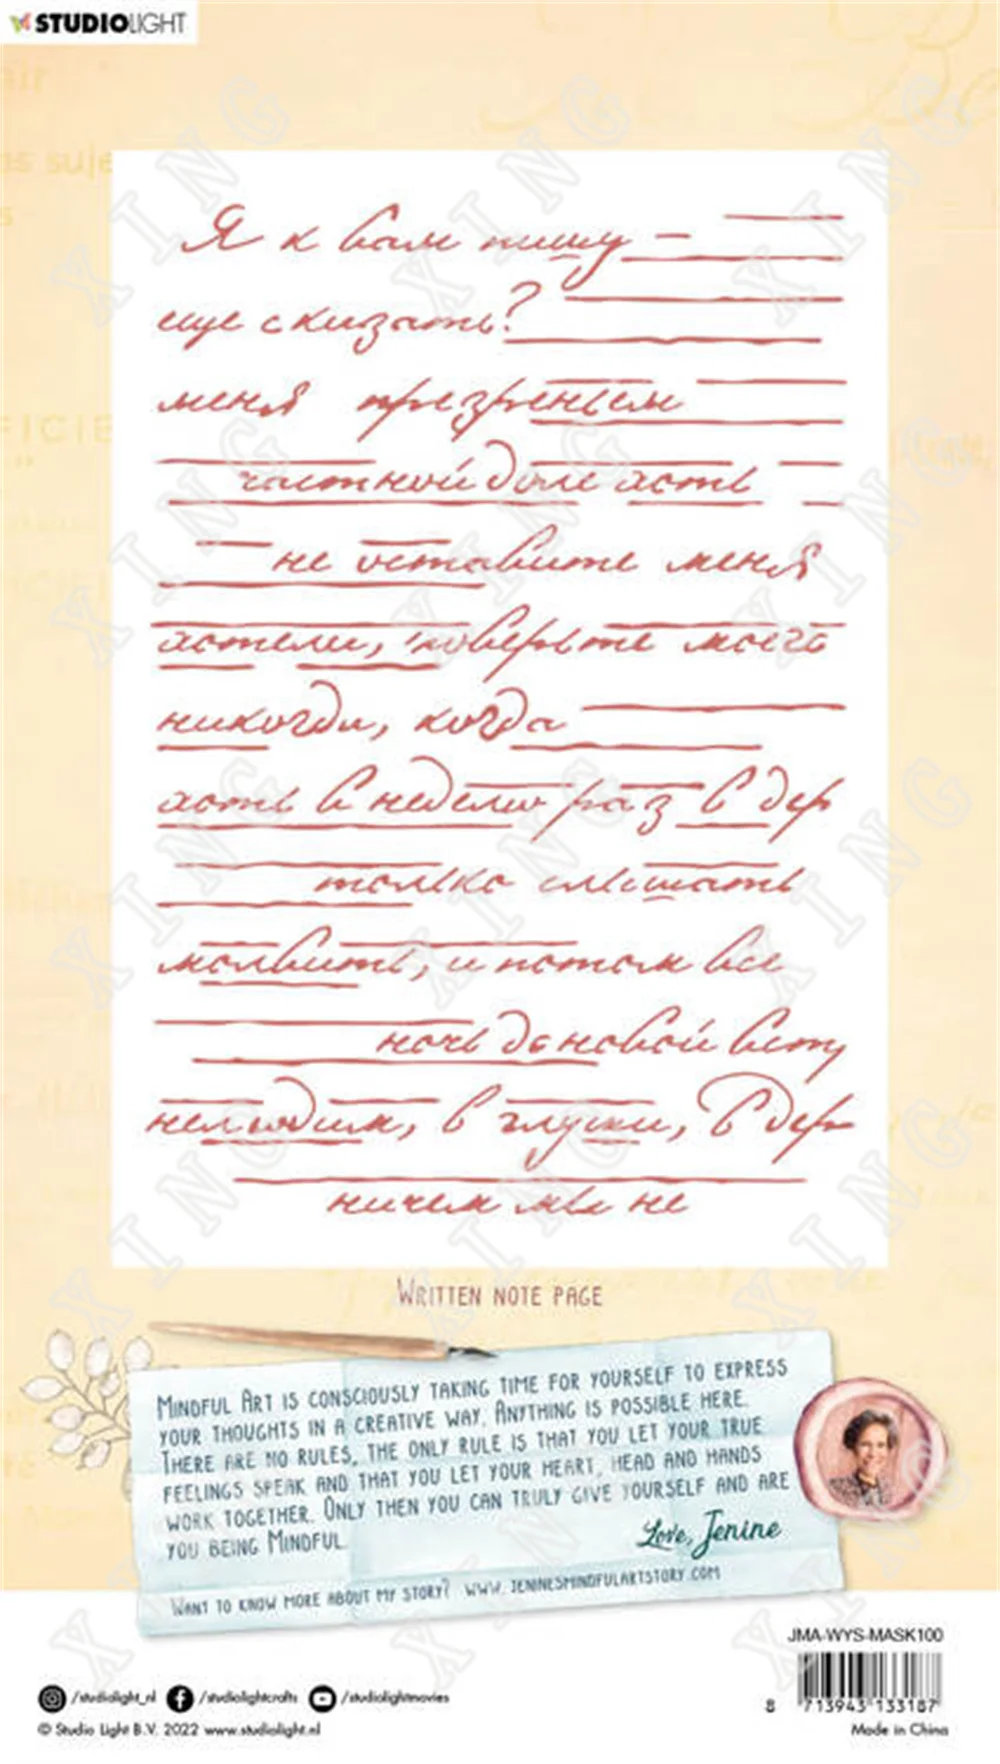 STUDIOLIGHT
Я к вам пишу –
еще сказать?
меня презреньем
частной доле хоть
не оставите меня
хотели, поверьте моего
никогда, когда
хоть в неделю раз в дер
только слышать
молвить, и потом все
ночь до новой вст
нелюдим, в глуши, в дер
ничем мы не
WRITTEN NOTE PAGE
MINDFUL ART IS CONSCIOUSLY TAKING TIME FOR YOURSELF TO EXPRESS
YOUR THOUGHTS IN A CREATIVE WAY. ANYTHING IS POSSIBLE HERE.
THERE ARE NO RULES, THE ONLY RULE IS THAT YOU LET YOUR TRUE
FEELINGS SPEAK AND THAT YOU LET YOUR HEART, HEAD AND HANDS
WORK TOGETHER. ONLY THEN YOU CAN TRULY GIVE YOURSELF AND ARE
YOU BEING MINDFUL.
Love, Jenine
WANT TO KNOW MORE ABOUT MY STORY? WWW.JENINESMINDFULARTSTORY.COM
JMA-WYS-MASK100
8 713943 133187
/studiolight_nl /studiolightcrafts /studiolightmovies
© Studio Light B.V. 2022 www.studiolight.nl
Made in China
XING